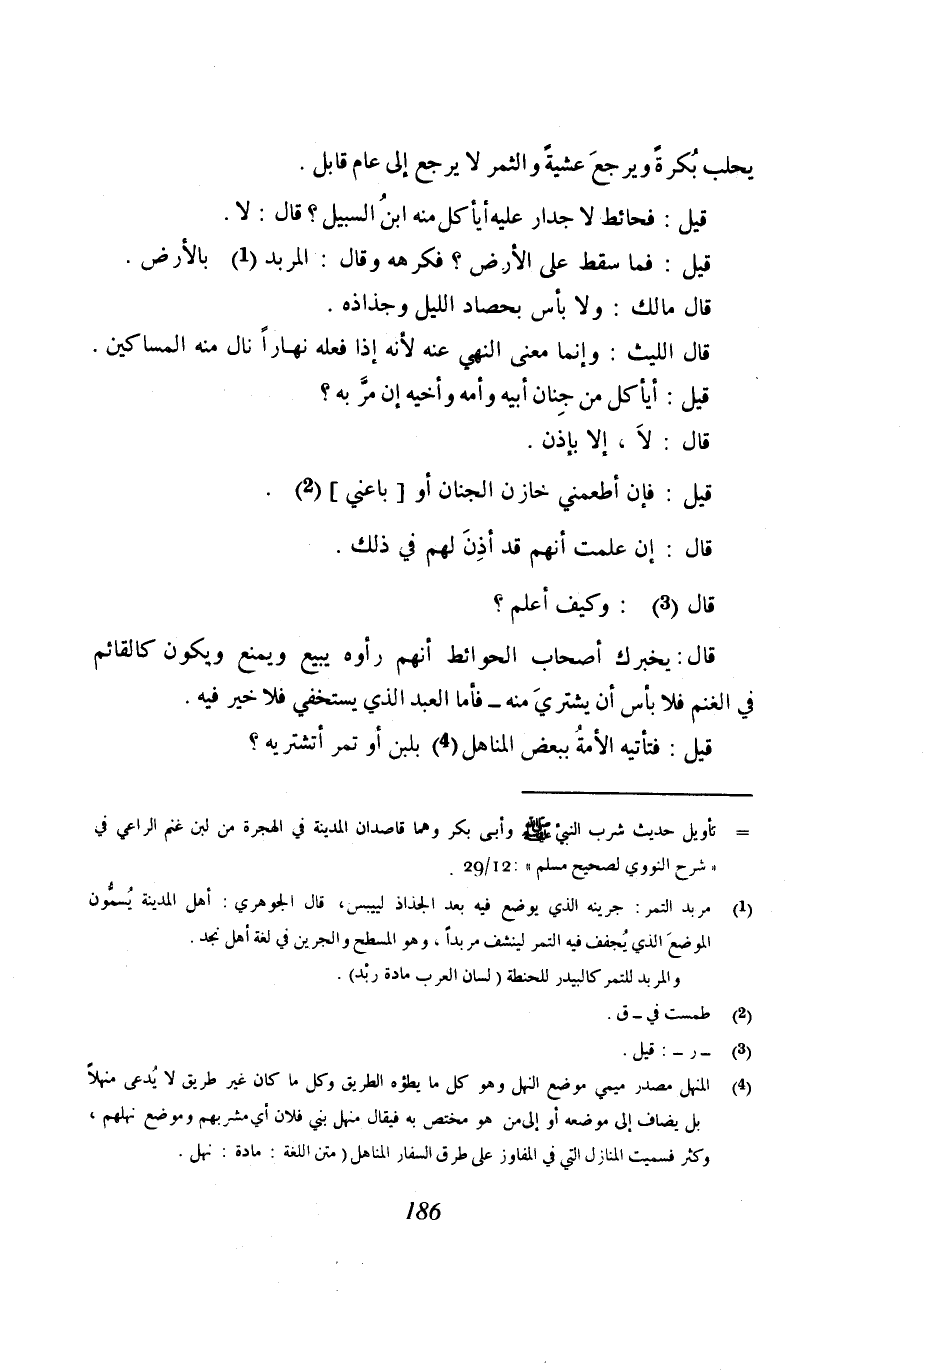 يحلب بُكرةً ويرجعَ عشيةً والثمر لا يرجع إلى عام قابل .
قيل : فحائط لا جدار عليه أيأكل منه ابنُ السبيل ؟ قال : لا .
قيل : فما سقط على الأرض ؟ فكرهه وقال : المربد (1) بالأرض .
قال مالك : ولا بأس بحصاد الليل وجذاذه .
قال الليث : وإنما معنى النهي عنه لأنه إذا فعله نهاراً نال منه المساكين .
قيل : أيأكل من جِنان أبيه وأمه وأخيه إن مرَّ به ؟
قال : لاَ ، إلا بإذن .
قيل : فإن أطعمني خازن الجنان أو [ باعني ] (2) .
قال : إن علمت أنهم قد أذِنَ لهم في ذلك .
قال (3) : وكيف أعلم ؟
قال : يخبرك أصحاب الحوائط أنهم رأوه يبيع ويمنع ويكون كالقائم
في الغنم فلا بأس أن يشتريَ منه ــ فأما العبد الذي يستخفي فلا خير فيه .
قيل : فتأتيه الأمةُ ببعض المناهل (4) بلبن أو تمر أتشتريه ؟
= تأويل حديث شرب النبيّ ﷺ وأبي بكر وهما قاصدان المدينة في الهجرة من لبن غنم الراعي في
« شرح النووي لصحيح مسلم » : 29/12 .
(1) مربد التمر : جرينه الذي يوضع فيه بعد الجذاذ لييبس، قال الجوهري : أهل المدينة يُسمُّون
الموضعَ الذي يُجفف فيه التمر لينشف مربداً ، وهو المسطح والجرين في لغة أهل نجد .
والمربد للتمر كالبيدر للحنطة ( لسان العرب مادة ربْد) .
(2) طمست في ــ ق .
(3) ــ ر ــ : قيل .
(4) المنهل مصدر ميمي موضع النهل وهو كل ما يطؤه الطريق وكل ما كان غير طريق لا يُدعى منهلاً
بل يضاف إلى موضعه أو إلى من هو مختص به فيقال منهل بني فلان أي مشربهم وموضع نهلهم ،
وكثر فسميت المنازل التي في المفاوز على طرق السفار المناهل ( متن اللغة : مادة : نهل .
186